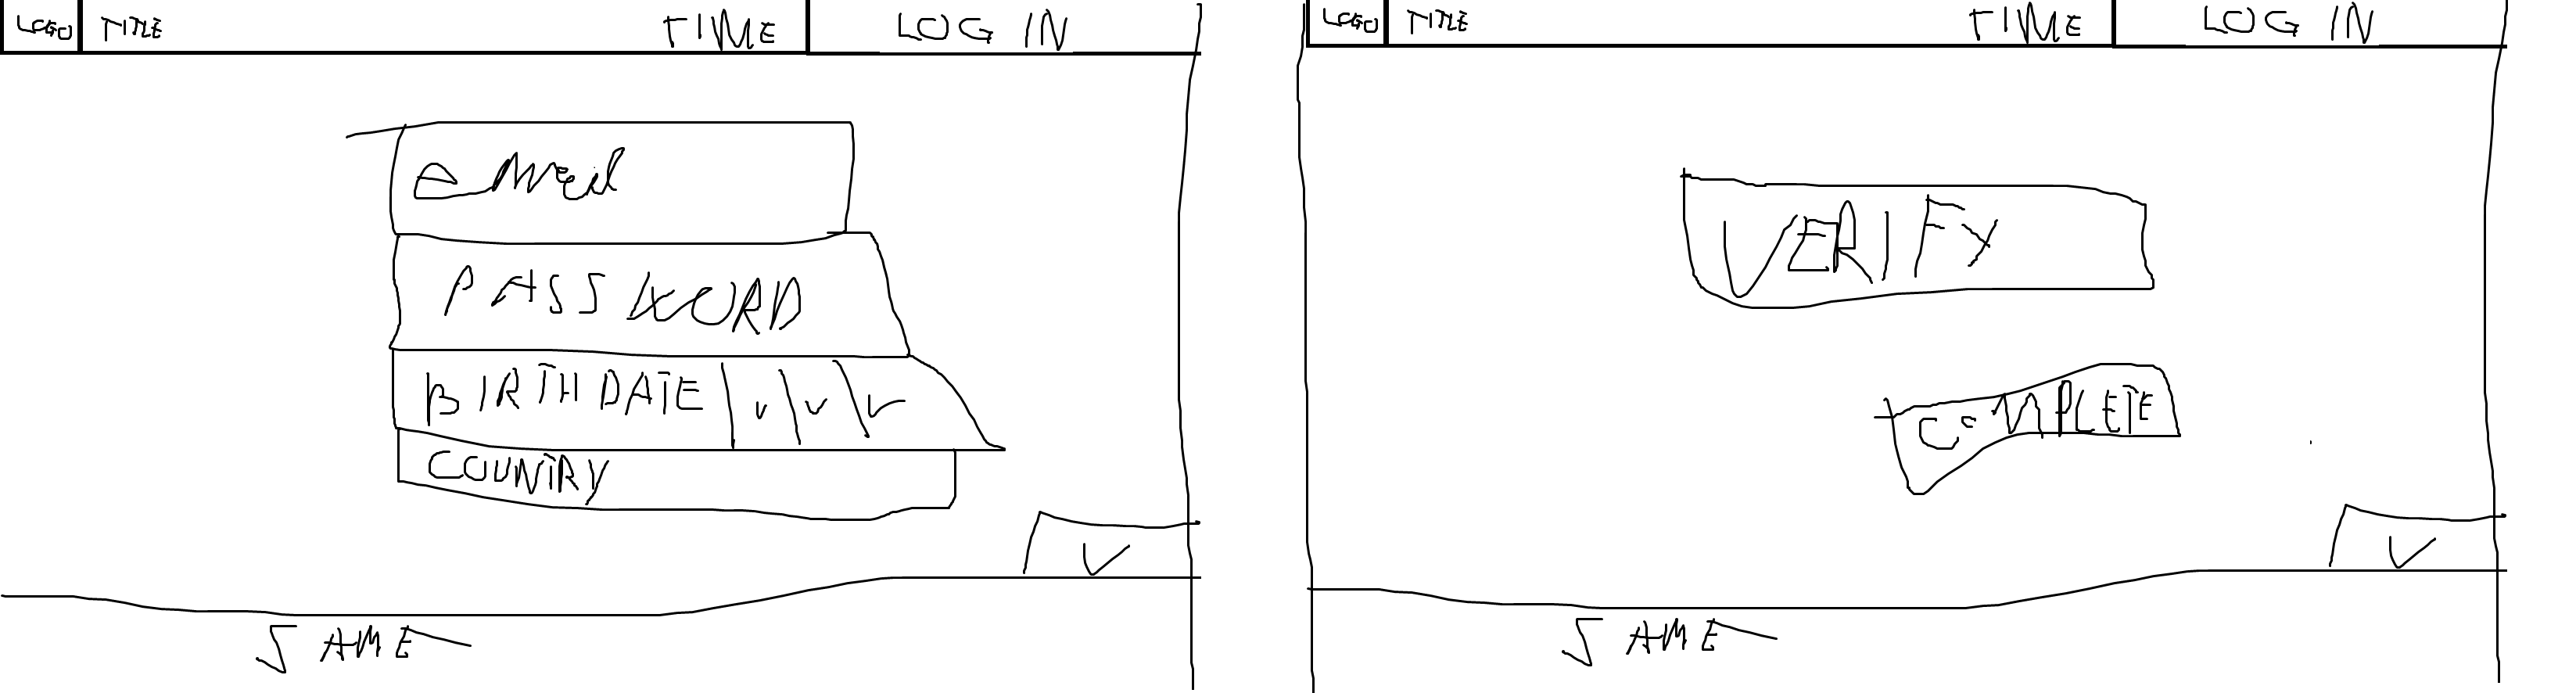 LOGO TITLE TIME LOG IN
e-Mail
PASSWORD
BIRTHDATE
COUNTRY
SAME
LOGO TITLE TIME LOG IN
VERIFY
COMPLETE
SAME